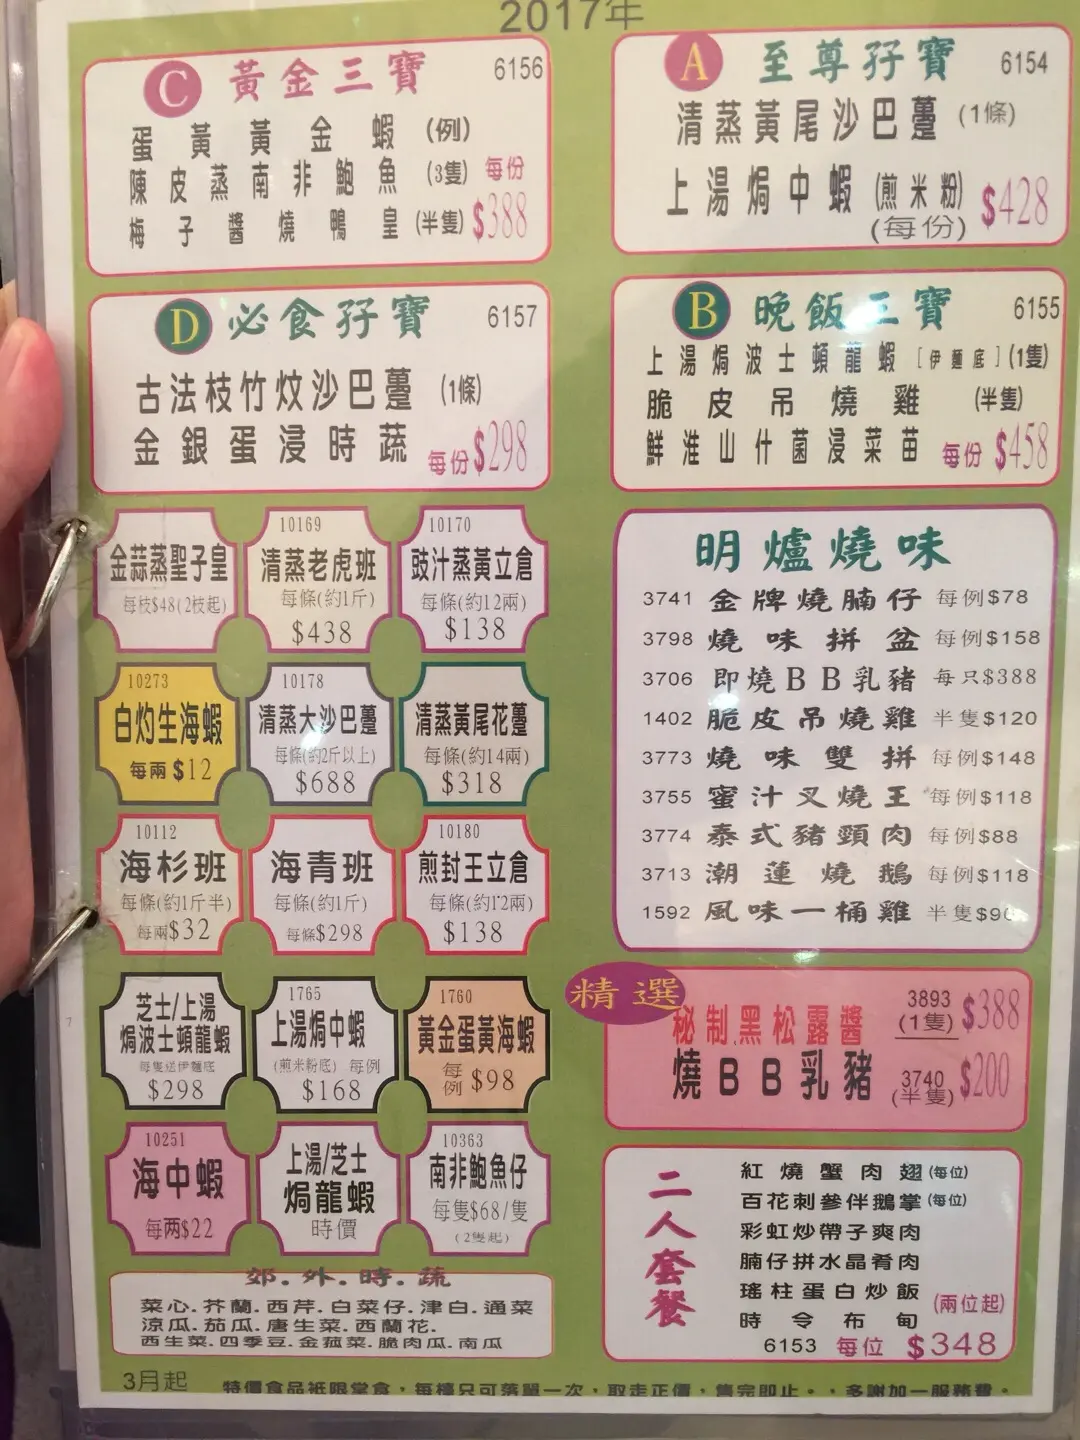 2017年
C 黃金三寶 6156
蛋黃黃金蝦 (例)
陳皮蒸南非鮑魚 (3隻) 每份
梅子醬燒鴨皇 (半隻) $388
A 至尊孖寶 6154
清蒸黃尾沙巴躉 (1條)
上湯焗中蝦 (煎米粉) $428
(每份)
D 必食孖寶 6157
古法枝竹炆沙巴躉 (1條)
金銀蛋浸時蔬 每份 $298
B 晚飯三寶 6155
上湯焗波士頓龍蝦 [伊麵底] (1隻)
脆皮吊燒雞 (半隻)
鮮淮山什菌浸菜苗 每份 $458
金蒜蒸聖子皇
每枝$48(2枝起)
10169
清蒸老虎班
每條(約1斤)
$438
10170
豉汁蒸黃立倉
每條(約12兩)
$138
10273
白灼生海蝦
每兩 $12
10178
清蒸大沙巴躉
每條(約2斤以上)
$688
清蒸黃尾花躉
每條(約14兩)
$318
10112
海杉班
每條(約1斤半)
每兩$32
海青班
每條(約1斤)
每條$298
10180
煎封王立倉
每條(約12兩)
$138
芝士/上湯
焗波士頓龍蝦
每隻送伊麵底
$298
1765
上湯焗中蝦
(煎米粉底) 每例
$168
1760
黃金蛋黃海蝦
每例 $98
10251
海中蝦
每两$22
上湯/芝士
焗龍蝦
時價
10363
南非鮑魚仔
每隻$68/隻
(2隻起)
郊.外.時.蔬
菜心.芥蘭.西芹.白菜仔.津白.通菜
涼瓜.茄瓜.唐生菜.西蘭花.
西生菜.四季豆.金菰菜.脆肉瓜.南瓜
明爐燒味
3741 金牌燒腩仔 每例$78
3798 燒味拼盆 每例$158
3706 即燒BB乳豬 每只$388
1402 脆皮吊燒雞 半隻$120
3773 燒味雙拼 每例$148
3755 蜜汁叉燒王 每例$118
3774 泰式豬頸肉 每例$88
3713 潮蓮燒鵝 每例$118
1592 風味一桶雞 半隻$90
精選
秘制黑松露醬 3893 (1隻) $388
燒BB乳豬 3740 (半隻) $200
二人套餐
紅燒蟹肉翅(每位)
百花刺參伴鵝掌(每位)
彩虹炒帶子爽肉
腩仔拼水晶肴肉
瑤柱蛋白炒飯
時令布甸 (兩位起)
6153 每位 $348
3月起
特價食品衹限堂食，每檯只可落單一次，取走正價，售完即止。，多謝加一服務費。